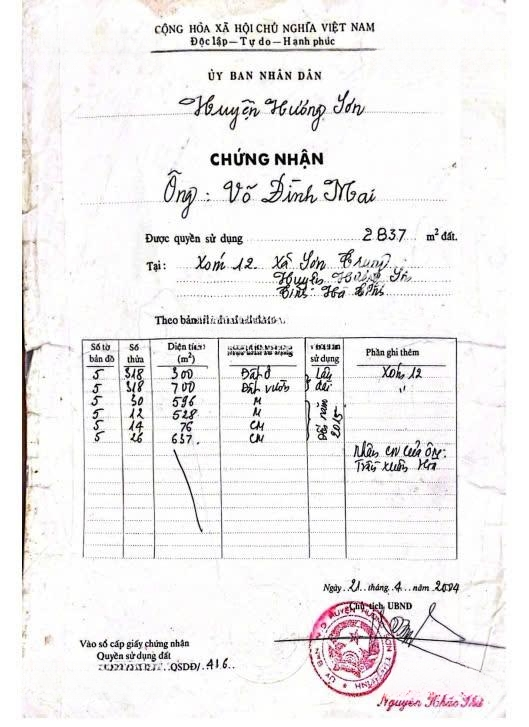 CỘNG HÒA XÃ HỘI CHỦ NGHĨA VIỆT NAM
Độc lập — Tự do — Hạnh phúc
ỦY BAN NHÂN DÂN
Huyện Hương Sơn
CHỨNG NHẬN
Ông: Võ Đình Mai
Được quyền sử dụng 2837 m² đất.
Tại: Xóm 12 Xã Sơn Trung
Huyện Hương Sơn
Tỉnh Hà Tĩnh
Theo bản
Số tờ bản đồ Số thửa Diện tích (m²) sử dụng Phần ghi thêm
5 318 300 Đất ở Lâu dài Xóm 12
5 318 700 Đất vườn
5 30 596 M Đến năm 2015
5 12 528 M
5 14 76 CM
5 26 637. CM
Nhận CN của ông:
Trần Xuân
Ngày 21 tháng 4 năm 2004
Chủ tịch UBND
Vào sổ cấp giấy chứng nhận
Quyền sử dụng đất
QSDĐ/.416
Nguyễn Khắc